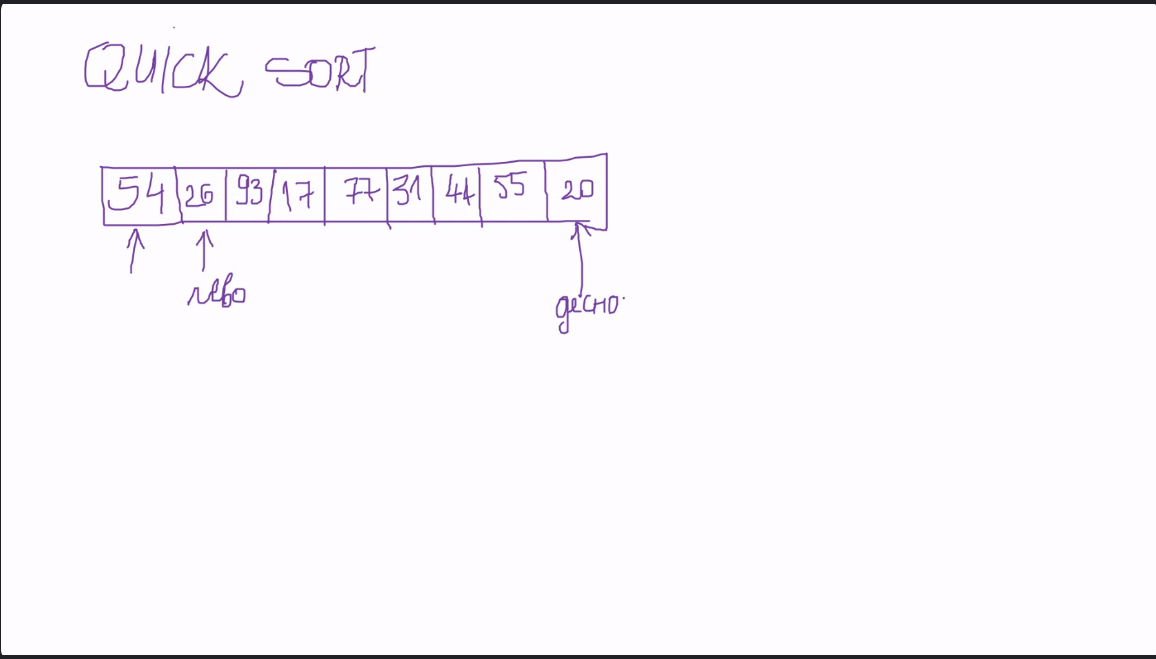 QUICK SORT
54 26 93 17 77 31 44 55 20
лево
десно